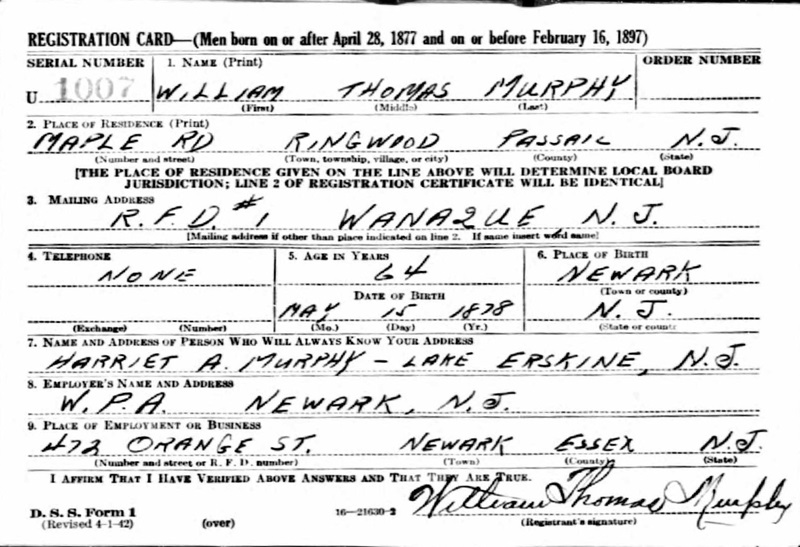 REGISTRATION CARD—(Men born on or after April 28, 1877 and on or before February 16, 1897)
SERIAL NUMBER 1. NAME (Print) ORDER NUMBER
U 1007 WILLIAM THOMAS MURPHY
(First) (Middle) (Last)
2. PLACE OF RESIDENCE (Print)
MAPLE RD RINGWOOD PASSAIC N.J.
(Number and street) (Town, township, village, or city) (County) (State)
[THE PLACE OF RESIDENCE GIVEN ON THE LINE ABOVE WILL DETERMINE LOCAL BOARD
JURISDICTION; LINE 2 OF REGISTRATION CERTIFICATE WILL BE IDENTICAL]
3. MAILING ADDRESS
R.F.D. #1 WANAQUE N.J.
[Mailing address if other than place indicated on line 2. If same insert word same]
4. TELEPHONE 5. AGE IN YEARS 6. PLACE OF BIRTH
NONE 64 NEWARK
DATE OF BIRTH (Town or county)
MAY 15 1878 N.J.
(Exchange) (Number) (Mo.) (Day) (Yr.) (State or count
7. NAME AND ADDRESS OF PERSON WHO WILL ALWAYS KNOW YOUR ADDRESS
HARRIET A. MURPHY – LAKE ERSKINE, N.J.
8. EMPLOYER'S NAME AND ADDRESS
W.P.A. NEWARK, N.J.
9. PLACE OF EMPLOYMENT OR BUSINESS
472 ORANGE ST. NEWARK ESSEX N.J.
(Number and street or R. F. D. number) (Town) (County) (State)
I AFFIRM THAT I HAVE VERIFIED ABOVE ANSWERS AND THAT THEY ARE TRUE.
William Thomas Murphy
D. S. S. Form 1
(Revised 4-1-42) (over) 16—21630-2 (Registrant's signature)